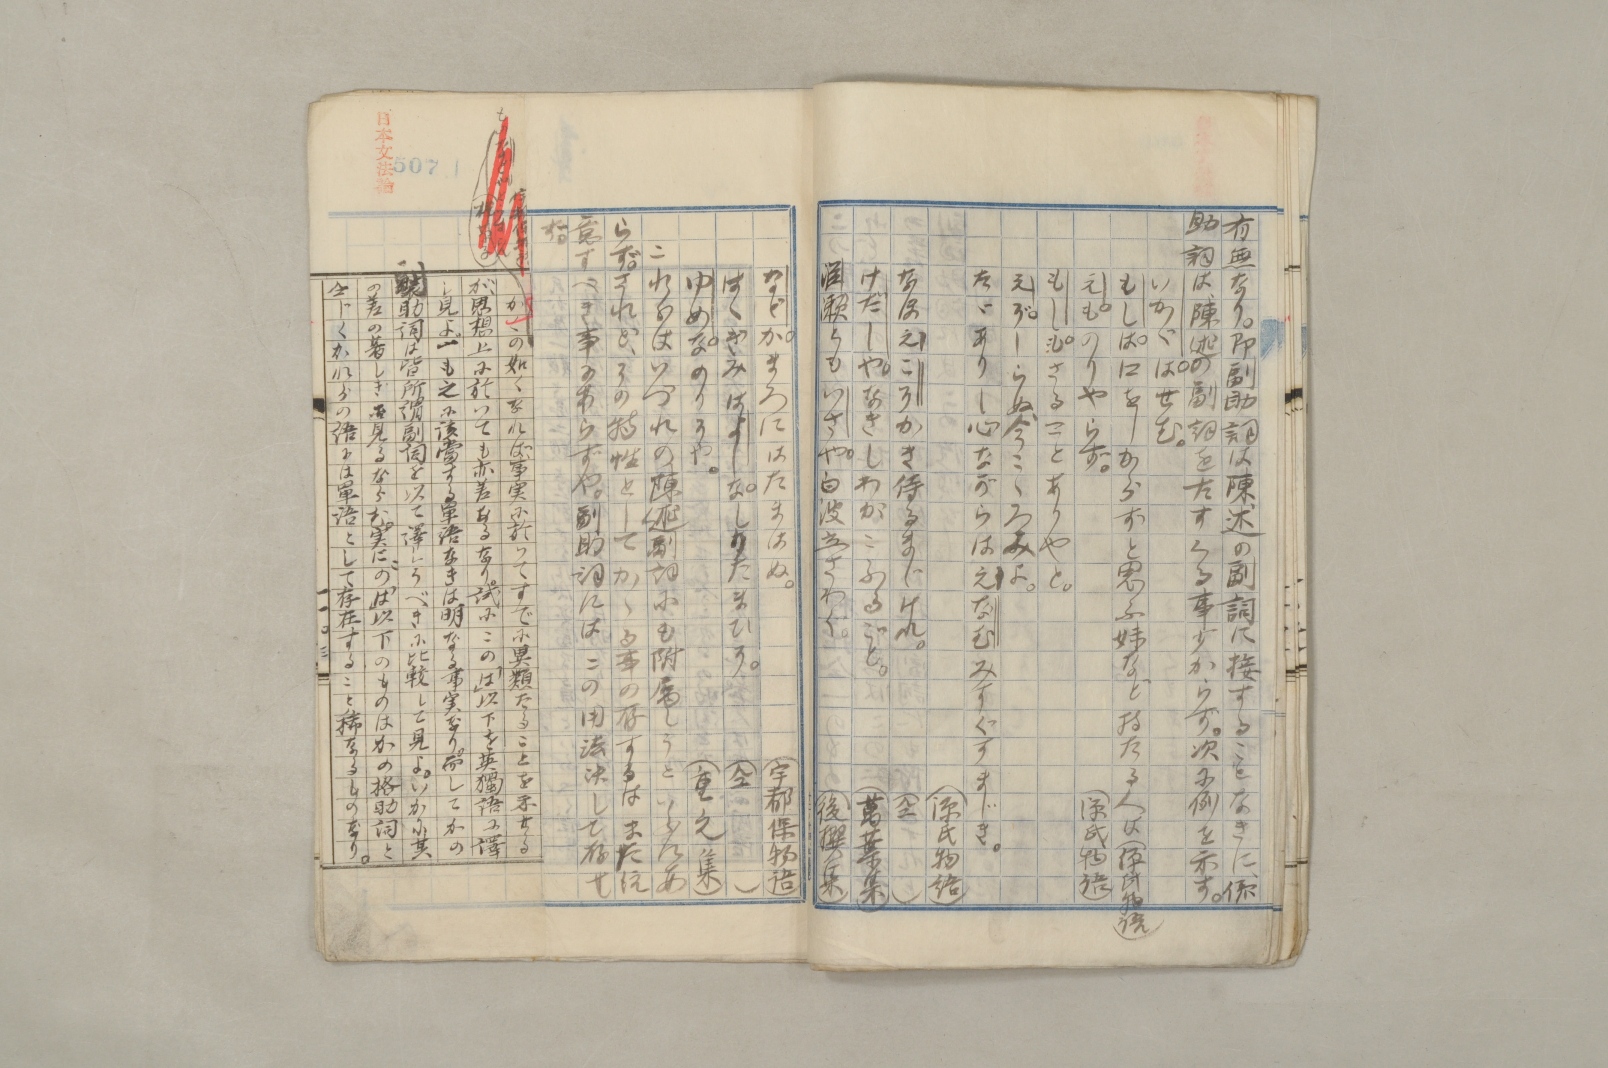 有無なり。即副助詞は陳述の副詞に接することなきに、係
助詞は陳述の副詞をたすくる事少からず。次に例を示す。
いかゞはせむ。
もしは口をしからずと思ふ妹など持たる人は(源氏物語)
えものりやらず。(源氏物語)
もしもさることありやと。
えぞしらぬ今こゝろみよ。
たゞありし心ながらはえなむみすぐすまじき。
(源氏物語)
なほえこそかき侍るまじけれ。(仝)
けだしやなきしわがこふるごと。(萬葉集)
雖もいさや白波立さわぐ。(後撰集)
などかまろにはたまはぬ。(宇都保物語)
はくぎみはよしな。しりたまひそ。(仝)
ゆめなのりそや。(重之集)
これらはいづれの陳述副詞にも附属しうといふにあ
らず。されど、その特性としてかゝる事の存するはまた注
意すべき事ならずや。副助詞にはこの用法決して存せ
ず。
かくの如くなれば事実に於いてすでに異類たることを示せる
が思想上に於いても亦差あるなり。試にこの「は」以下を英獨語に譯
し見よ。一も之に該當する單語なきは明なる事実なり。而してかの
副助詞は皆所謂副詞を以て譯しうべきに比較して見よ。いかに其
の差の著しきを見るならむ。実にこの「は」以下のものはかの格助詞と
仝じくかれらの語には單語として存在すること稀なるものなり。
日本文法論
507
一一〇三